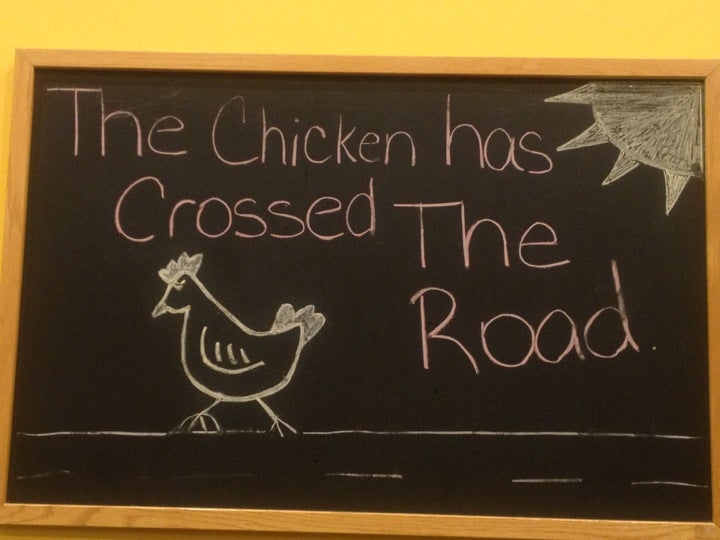 The Chicken has
Crossed The
Road.